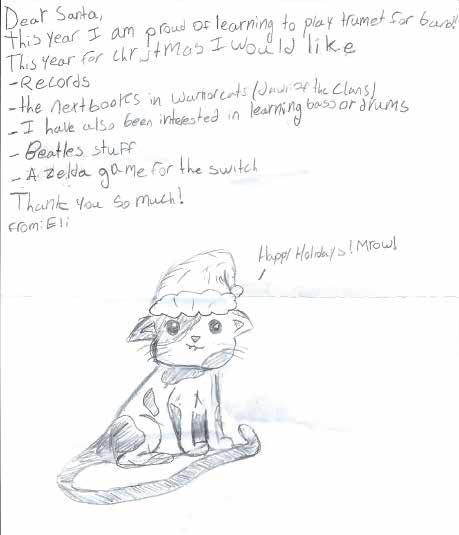 Dear Santa,
This year I am proud of learning to play trumet for band!
This year for christmas I would like
-Records
-the next books in warriorcats (Dawn of the Clans)
-I have also been interested in learning bass or drums
-Beatles stuff
-A zelda game for the switch
Thank you so much!
From: Eli
Happy Holidays! Mrow!